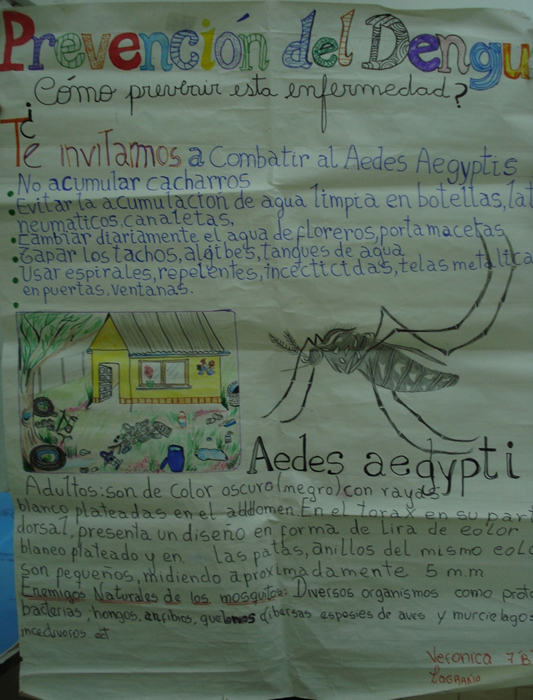 Prevención del Dengu
¿Cómo prevenir esta enfermedad?
Te invitamos a Combatir al Aedes Aegyptis
No acumular cacharros
Evitar la acumulación de agua limpia en botellas, lat
neumaticos, canaletas.
Cambiar diariamente el agua de floreros, porta macetas
Tapar los tachos, algibes, tanques de agua
Usar espirales, repelentes, incecticidas, telas metalica
en puertas, ventanas.
Aedes aegypti
Adultos: son de color oscuro (negro) con rayas
blanco plateadas en el abdomen. En el torax en su part
dorsal, presenta un diseño en forma de lira de color
blanco plateado y en las patas, anillos del mismo colo
son pequeños, midiendo aproximadamente 5 m.m
Enemigos Naturales de los mosquitos: Diversos organismos como proto
bacterias, hongos, anfibios, diversas espesies de aves y murcielagos
Veronica 7°"B"